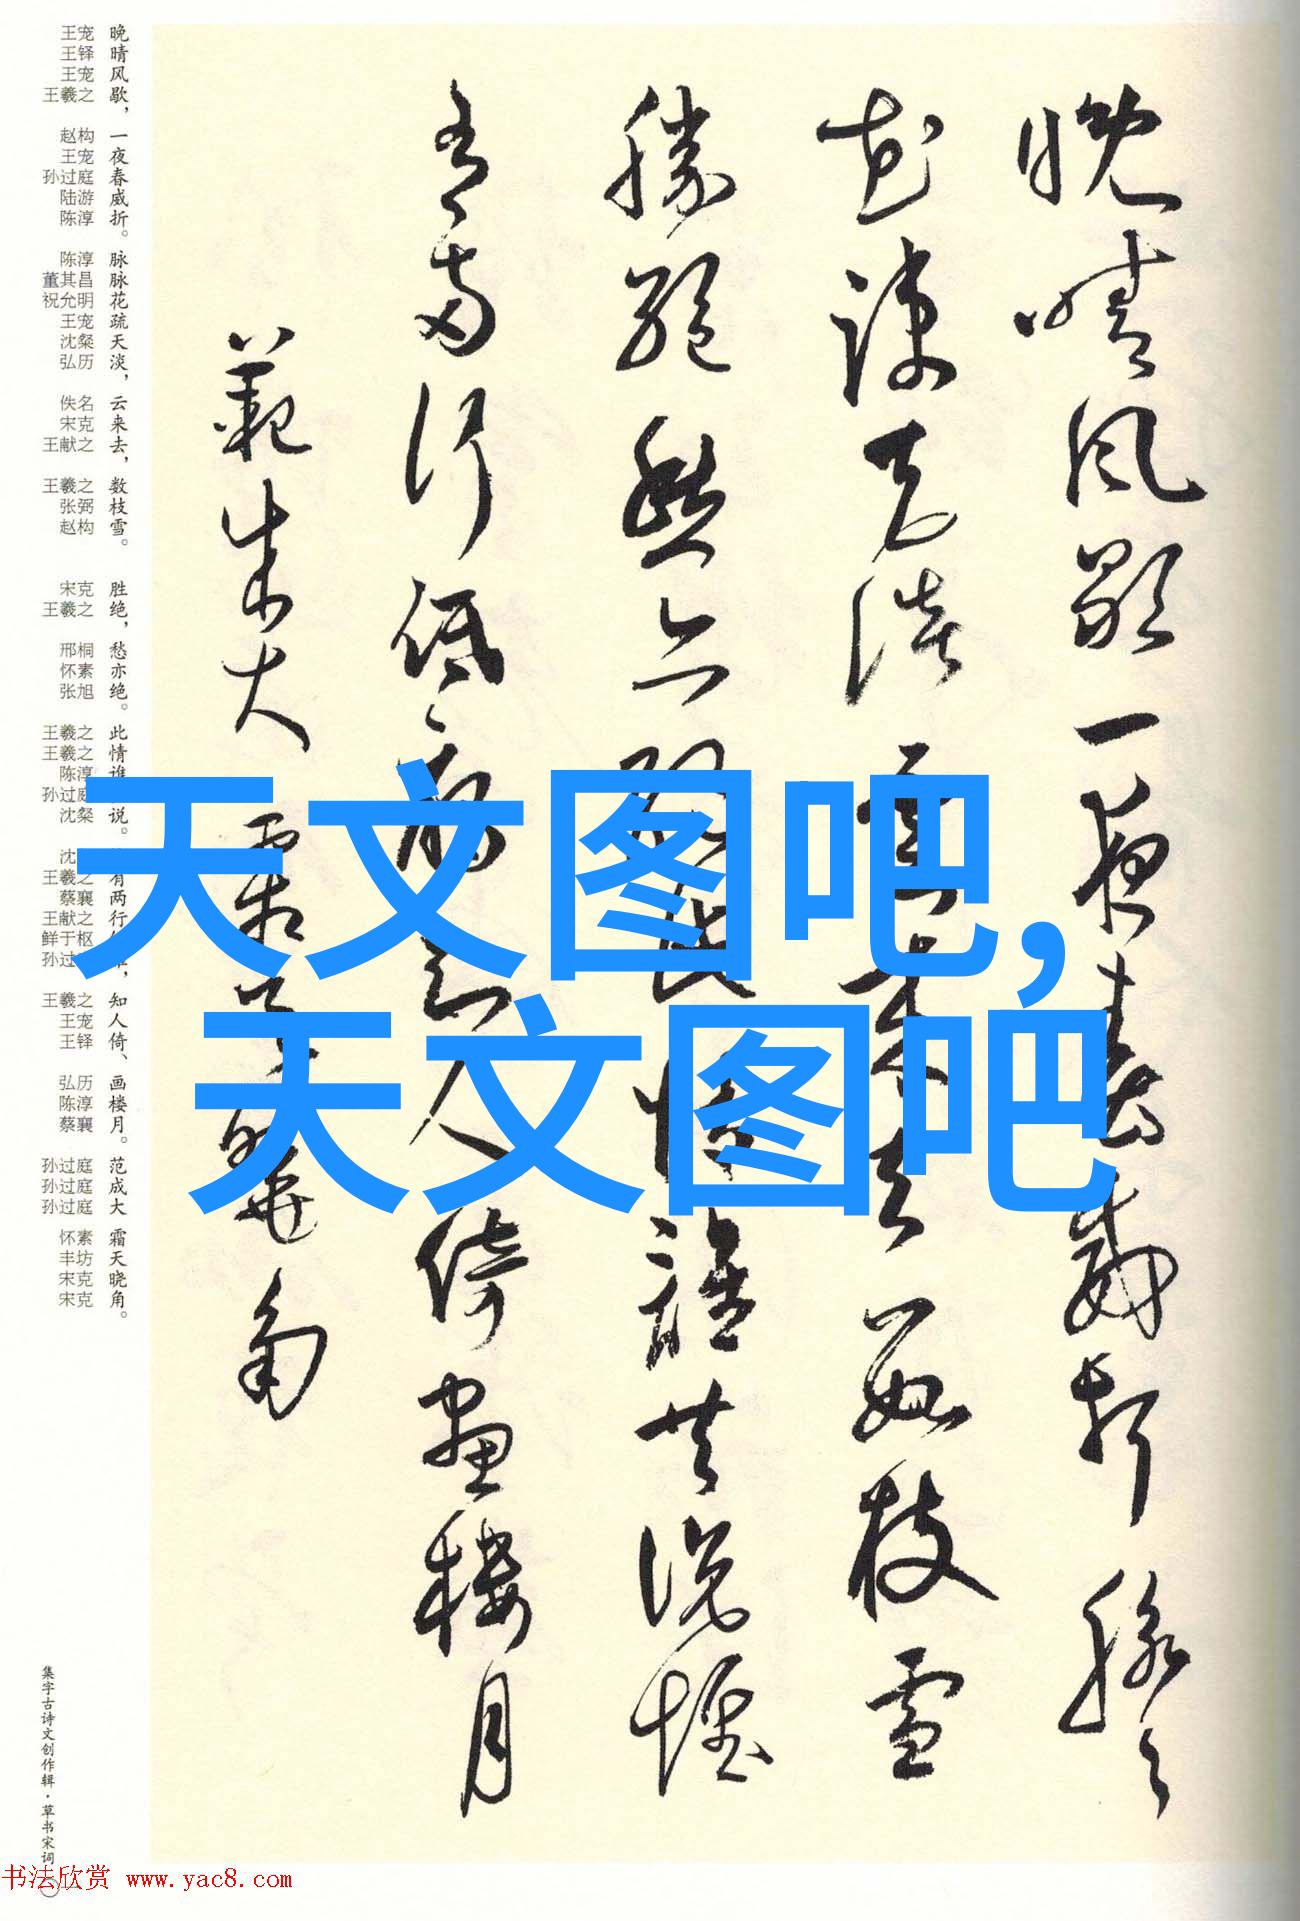 晚晴風歇一夜春威折脉々
花疎天淡雲來去數枝雪
勝絕愁亦絕此情誰共說惟
有兩行低雁知人倚畫樓月
範成大 霜天曉角
晚晴风歇，一夜春威折。脉脉花疏天淡，云来去，数枝雪。 胜绝，愁亦绝。此情谁说。有两行，知人倚、画楼月。范成大 霜天晓角。
王宠 王铎 王宠 王羲之 赵构 王宠 孙过庭 陆游 陈淳 陈淳 董其昌 祝允明 王宠 沈粲 弘历 佚名 宋克 王献之 王羲之 张弼 赵构 宋克 王羲之 邢桐 怀素 张旭 王羲之 王羲之 陈淳 孙过庭 沈粲 沈 王羲之 蔡襄 王献之 鲜于枢 孙过 王羲之 王宠 王铎 弘历 陈淳 蔡襄 孙过庭 孙过庭 孙过庭 怀素 丰坊 宋克 宋克
集字古诗文创作辑·草书宋词
天文图吧,
天文图吧
书法欣赏 www.yac8.com